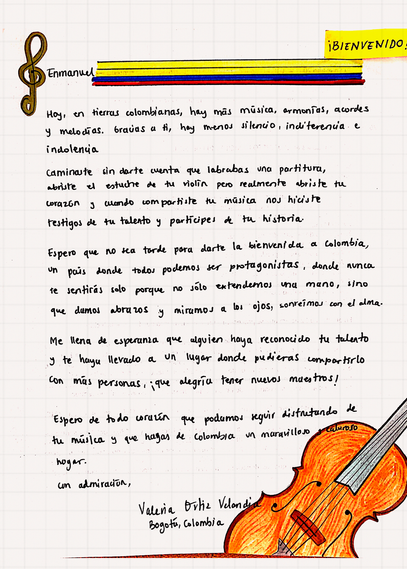 ¡BIENVENIDO!
Enmanuel
Hoy, en tierras colombianas, hay más música, armonías, acordes
y melodías. Gracias a ti, hay menos silencio, indiferencia e
indolencia
Caminaste sin darte cuenta que labrabas una partitura,
abriste el estuche de tu violín pero realmente abriste tu
corazón y cuando compartiste tu música nos hiciste
testigos de tu talento y partícipes de tu historia.
Espero que no sea tarde para darte la bienvenida a Colombia,
un país donde todos podemos ser protagonistas, donde nunca
te sentirás solo porque no sólo extendemos una mano, sino
que damos abrazos y miramos a los ojos, sonreímos con el alma.
Me llena de esperanza que alguien haya reconocido tu talento
y te haya llevado a un lugar donde pudieras compartirlo
con más personas, ¡que alegría tener nuevos maestros!
Espero de todo corazón que podamos seguir disfrutando de
tu música y que hagas de Colombia un maravilloso y caluroso
hogar.
Con admiración,
Valeria Ortiz Velandia
Bogotá, Colombia